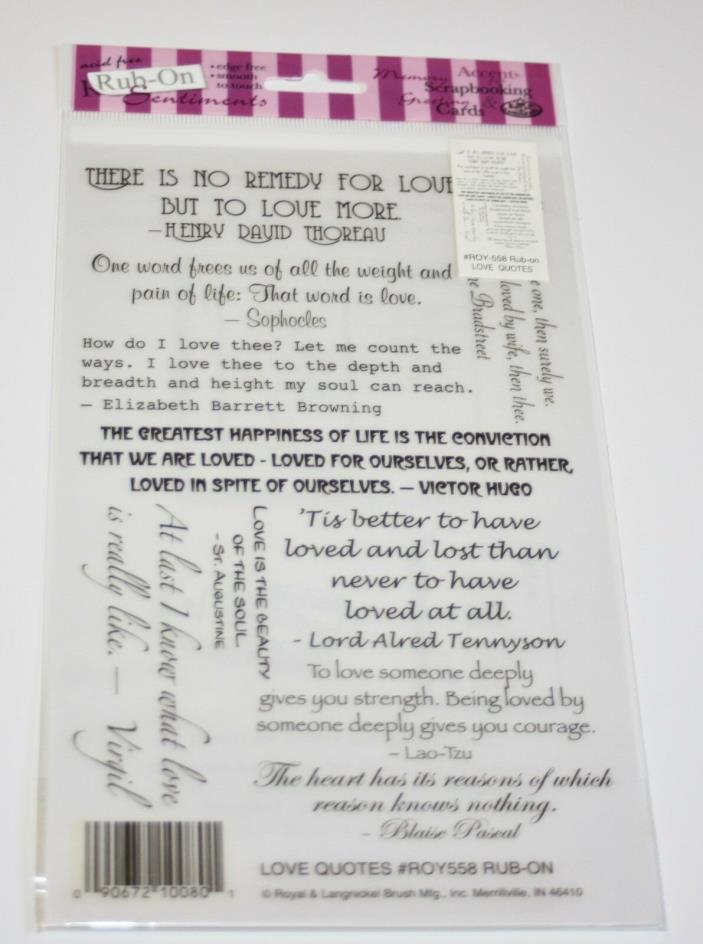 acid free
Rub-On
Sentiments
• edge free
• smooth
to touch
Memory
Accents
Scrapbooking
Greeting &
Cards
#ROY-558 Rub-on
LOVE QUOTES
THERE IS NO REMEDY FOR LOVE
BUT TO LOVE MORE.
—HENRY DAVID THOREAU
One word frees us of all the weight and
pain of life: That word is love.
— Sophocles
e one, then surely we.
loved by wife, then thee.
ne Bradstreet
How do I love thee? Let me count the
ways. I love thee to the depth and
breadth and height my soul can reach.
— Elizabeth Barrett Browning
THE GREATEST HAPPINESS OF LIFE IS THE CONVICTION
THAT WE ARE LOVED - LOVED FOR OURSELVES, OR RATHER,
LOVED IN SPITE OF OURSELVES. — VICTOR HUGO
At last I know what love
is really like. — Virgil
LOVE IS THE BEAUTY
OF THE SOUL.
- ST. AUGUSTINE
'Tis better to have
loved and lost than
never to have
loved at all.
- Lord Alred Tennyson
To love someone deeply
gives you strength. Being loved by
someone deeply gives you courage.
– Lao-Tzu
The heart has its reasons of which
reason knows nothing.
- Blaise Pascal
0 90672 10080 1
LOVE QUOTES #ROY558 RUB-ON
© Royal & Langnickel Brush Mfg., Inc. Merrillville, IN 46410